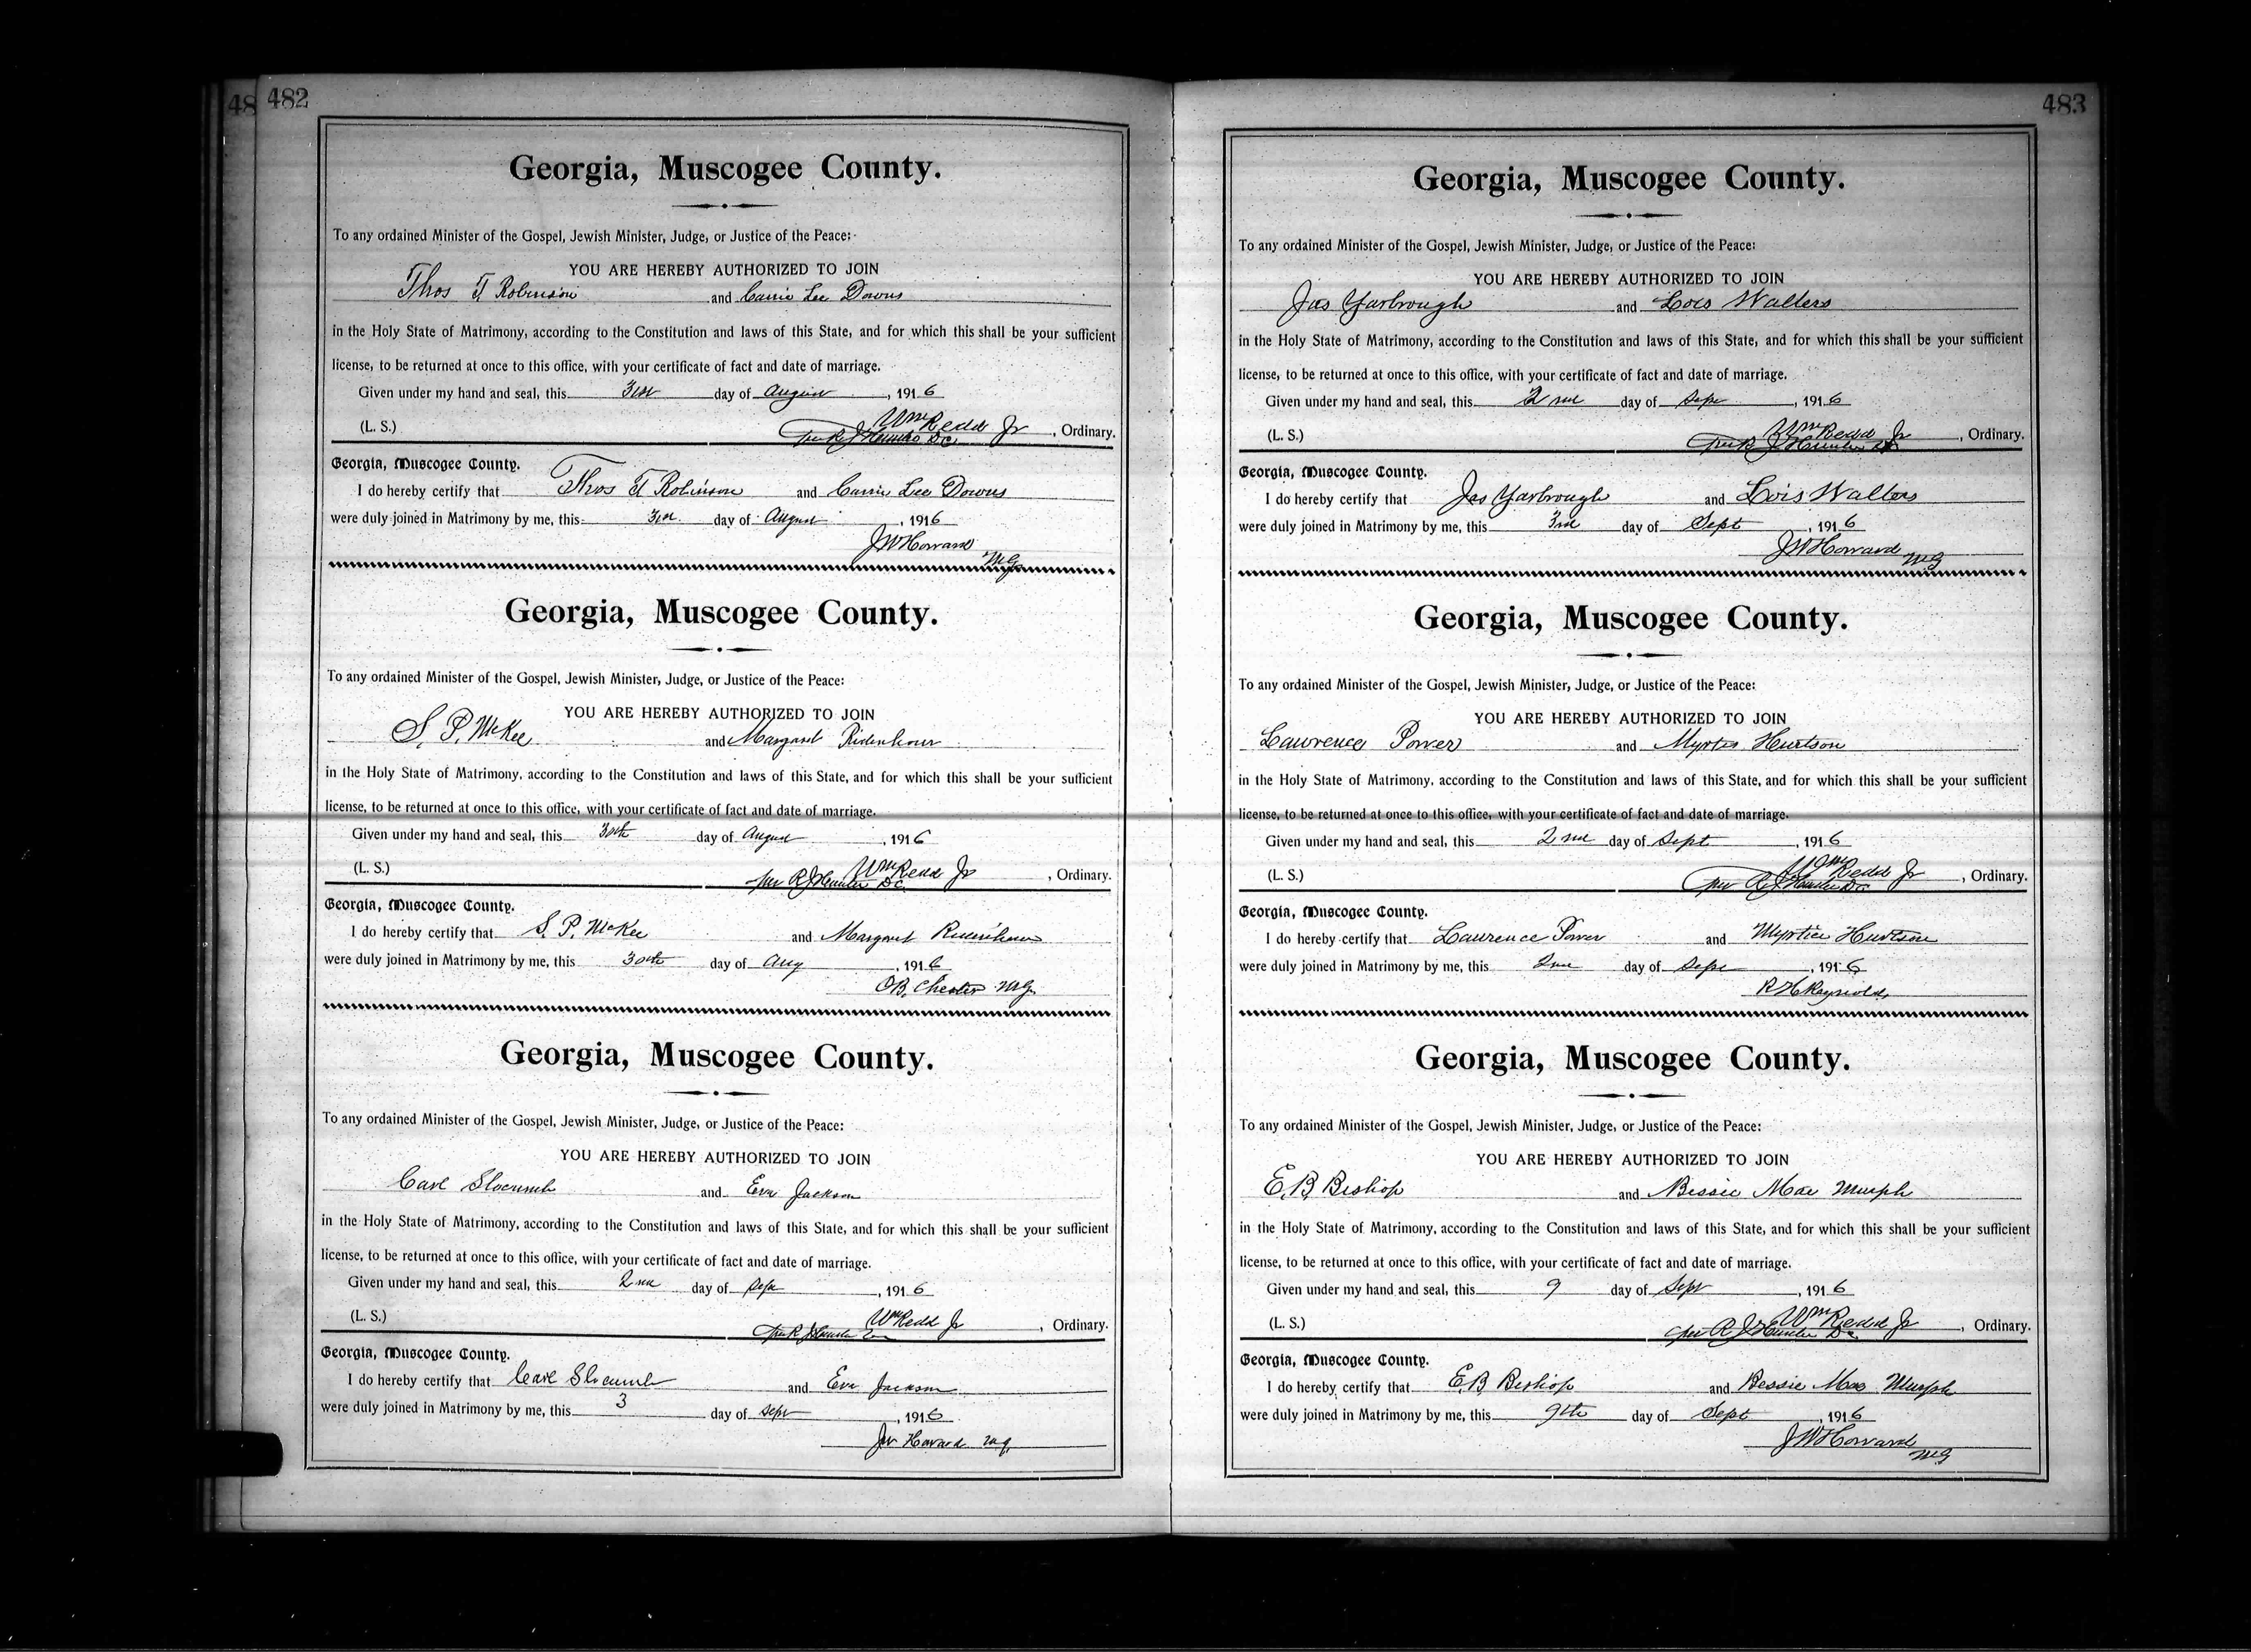 48 482
Georgia, Muscogee County.
To any ordained Minister of the Gospel, Jewish Minister, Judge, or Justice of the Peace:
YOU ARE HEREBY AUTHORIZED TO JOIN
Thos T Robinson and Carrie Lee Downs
in the Holy State of Matrimony, according to the Constitution and laws of this State, and for which this shall be your sufficient
license, to be returned at once to this office, with your certificate of fact and date of marriage.
Given under my hand and seal, this day of August, 1916
Wm Redd Jr
(L. S.) per R J Hunter D.C., Ordinary.
Georgia, Muscogee County.
I do hereby certify that Thos T Robinson and Carrie Lee Downs
were duly joined in Matrimony by me, this day of August, 1916
JW Howard
MG
Georgia, Muscogee County.
To any ordained Minister of the Gospel, Jewish Minister, Judge, or Justice of the Peace:
YOU ARE HEREBY AUTHORIZED TO JOIN
S. P. McKee and Margaret Ridenhour
in the Holy State of Matrimony, according to the Constitution and laws of this State, and for which this shall be your sufficient
license, to be returned at once to this office, with your certificate of fact and date of marriage.
Given under my hand and seal, this 30th day of August, 1916
Wm Redd Jr
(L. S.) per R J Hunter D.C., Ordinary.
Georgia, Muscogee County.
I do hereby certify that S. P. McKee and Margaret Ridenhour
were duly joined in Matrimony by me, this 30th day of Aug, 1916
O.B. Chester MG
Georgia, Muscogee County.
To any ordained Minister of the Gospel, Jewish Minister, Judge, or Justice of the Peace:
YOU ARE HEREBY AUTHORIZED TO JOIN
Carl Slocumb and Eva Jackson
in the Holy State of Matrimony, according to the Constitution and laws of this State, and for which this shall be your sufficient
license, to be returned at once to this office, with your certificate of fact and date of marriage.
Given under my hand and seal, this 2nd day of Sept, 1916
Wm Redd Jr
(L. S.) per R J Hunter, Ordinary.
Georgia, Muscogee County.
I do hereby certify that Carl Slocumb and Eva Jackson
were duly joined in Matrimony by me, this 3 day of Sept, 1916
JW Howard MG
483
Georgia, Muscogee County.
To any ordained Minister of the Gospel, Jewish Minister, Judge, or Justice of the Peace:
YOU ARE HEREBY AUTHORIZED TO JOIN
Jas Yarbrough and Lois Walters
in the Holy State of Matrimony, according to the Constitution and laws of this State, and for which this shall be your sufficient
license, to be returned at once to this office, with your certificate of fact and date of marriage.
Given under my hand and seal, this 2nd day of Sept, 1916
Wm Redd Jr
(L. S.) per R J Hunter, Ordinary.
Georgia, Muscogee County.
I do hereby certify that Jas Yarbrough and Lois Walters
were duly joined in Matrimony by me, this 3rd day of Sept, 1916
JW Howard MG
Georgia, Muscogee County.
To any ordained Minister of the Gospel, Jewish Minister, Judge, or Justice of the Peace:
YOU ARE HEREBY AUTHORIZED TO JOIN
Lawrence Power and Myrtis Hurtson
in the Holy State of Matrimony, according to the Constitution and laws of this State, and for which this shall be your sufficient
license, to be returned at once to this office, with your certificate of fact and date of marriage.
Given under my hand and seal, this 2nd day of Sept, 1916
Wm Redd Jr
(L. S.) per R J Hunter D.C., Ordinary.
Georgia, Muscogee County.
I do hereby certify that Lawrence Power and Myrtice Hurtson
were duly joined in Matrimony by me, this 2nd day of Sept, 1916
R H Raynolds
Georgia, Muscogee County.
To any ordained Minister of the Gospel, Jewish Minister, Judge, or Justice of the Peace:
YOU ARE HEREBY AUTHORIZED TO JOIN
E. B. Bishop and Bessie Mae Murph
in the Holy State of Matrimony, according to the Constitution and laws of this State, and for which this shall be your sufficient
license, to be returned at once to this office, with your certificate of fact and date of marriage.
Given under my hand and seal, this 9 day of Sept, 1916
Wm Redd Jr
(L. S.) per R J Hunter D.C., Ordinary.
Georgia, Muscogee County.
I do hereby certify that E. B. Bishop and Bessie Mae Murph
were duly joined in Matrimony by me, this 9th day of Sept, 1916
JW Howard
MG